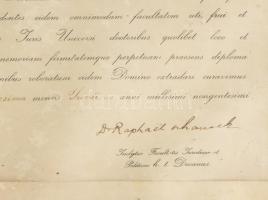 dentes eidem omnimodam facultatem uti, frui et
Juris Universi doctoribus quolibet loco et
memoriam firmitatemque perpetuam praesens diploma
roboratum eidem Domino extradari curavimus
mensis anni millesimi nongentesimi
Dr Raphael
Facultatis Juridicae et
Politicae h. t. Decanus